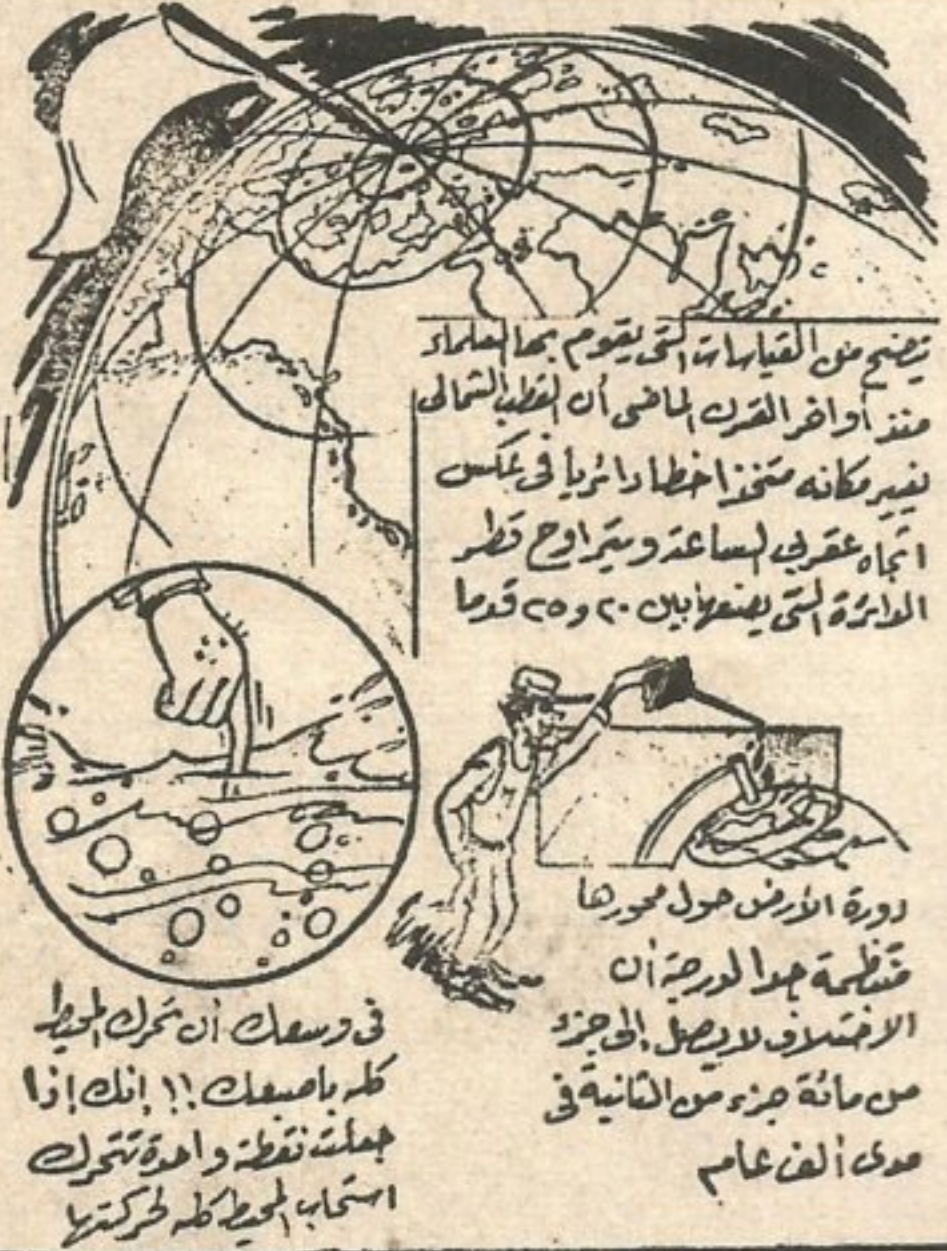 يتضح من القياسات التى يقوم بها العلماء
منذ أواخر القرن الماضى أن القطب الشمالى
يغير مكانه متخذا خطا دائريا فى عكس
اتجاه عقربى الساعة ويتراوح قطر
الدائرة التى يصنعها بين ٢٠ و ٢٥ قدما
دورة الأرض حول محورها
منتظمة جدا لدرجة أن
الاختلاف لا يصل إلى جزء
من مائة جزء من الثانية فى
مدى ألف عام
فى وسعك أن تحرك المحيط
كله باصبعك !! إنك إذا
جعلت نقطة واحدة تتحرك
استجاب المحيط كله لحركتها